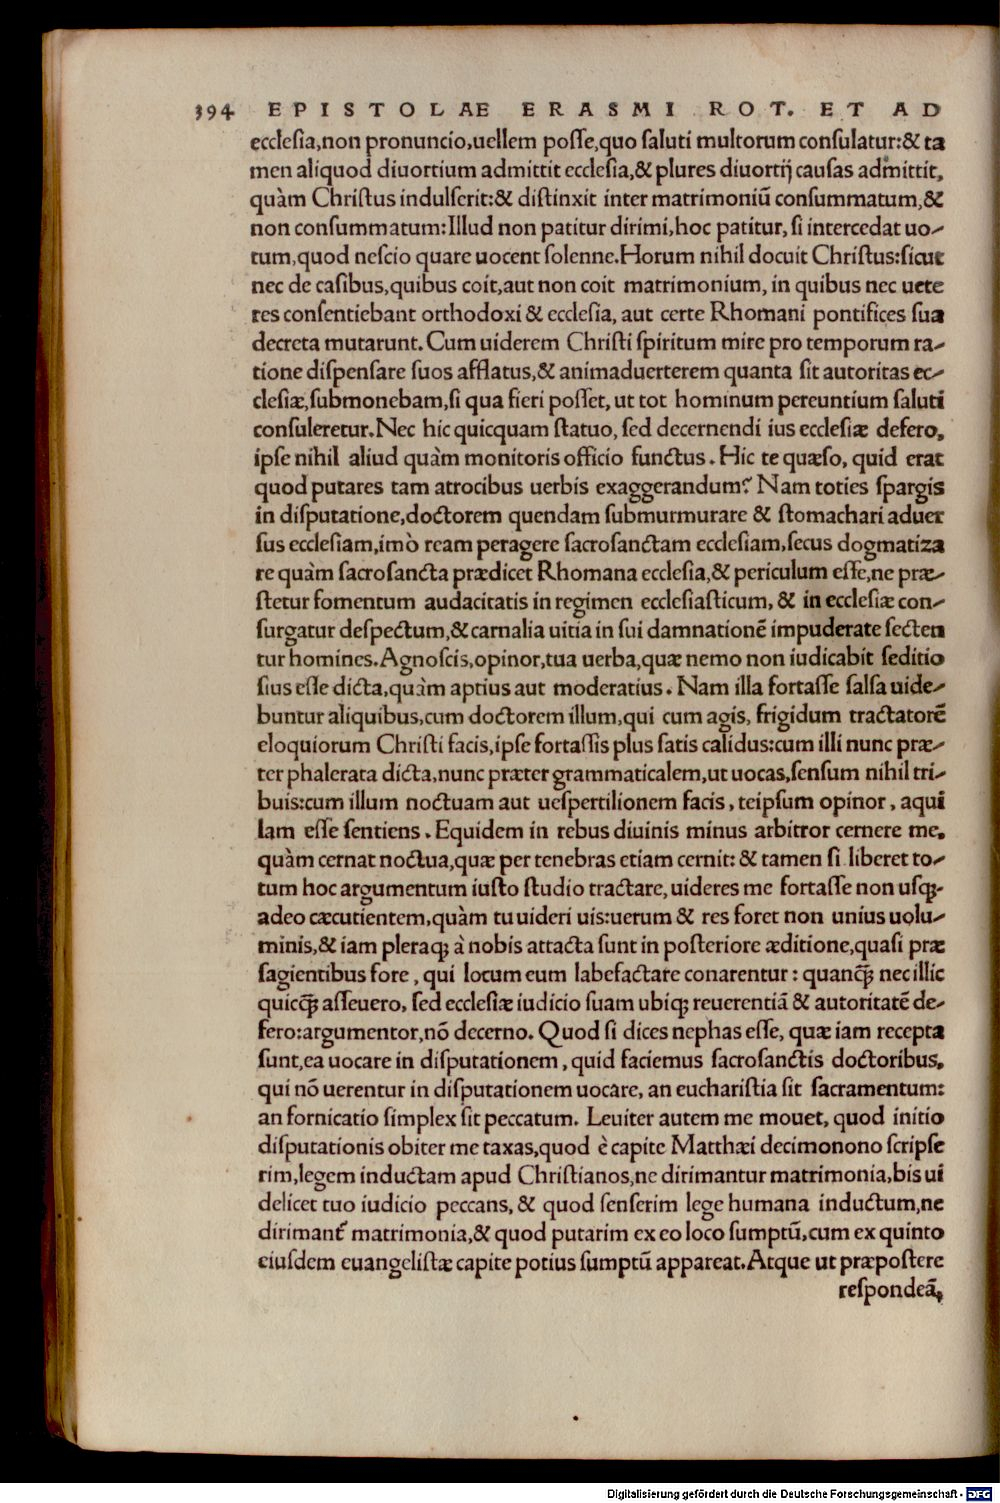 394 EPISTOLAE ERASMI ROT. ET AD
ecclesia,non pronuncio,uellem posse,quo saluti multorum consulatur:& ta
men aliquod diuortium admittit ecclesia,& plures diuortij causas admittit,
quàm Christus indulserit:& distinxit inter matrimoniũ consummatum,&
non consummatum:Illud non patitur dirimi,hoc patitur, si intercedat uo-
tum,quod nescio quare uocent solenne.Horum nihil docuit Christus:sicut
nec de casibus,quibus coit,aut non coit matrimonium, in quibus nec uete
res consentiebant orthodoxi & ecclesia, aut certe Rhomani pontifices sua
decreta mutarunt. Cum uiderem Christi spiritum mire pro temporum ra-
tione dispensare suos afflatus,& animaduerterem quanta sit autoritas ec-
clesiæ,submonebam,si qua fieri posset, ut tot hominum pereuntium saluti
consuleretur.Nec hic quicquam statuo, sed decernendi ius ecclesiæ defero,
ipse nihil aliud quàm monitoris officio functus. Hic te quæso, quid erat
quod putares tam atrocibus uerbis exaggerandum? Nam toties spargis
in disputatione,doctorem quendam submurmurare & stomachari aduer
sus ecclesiam,imò ream peragere sacrosanctam ecclesiam,secus dogmatiza
re quàm sacrosancta prædicet Rhomana ecclesia,& periculum esse,ne præ-
stetur fomentum audacitatis in regimen ecclesiasticum, & in ecclesiæ con-
surgatur despectum,& carnalia uitia in sui damnationẽ impuderate secten
tur homines.Agnoscis,opinor,tua uerba,quæ nemo non iudicabit seditio
sius esse dicta,quàm aptius aut moderatius. Nam illa fortasse salsa uide-
buntur aliquibus,cum doctorem illum,qui cum agis, frigidum tractatorẽ
eloquiorum Christi facis,ipse fortassis plus satis calidus:cum illi nunc præ-
ter phalerata dicta,nunc præter grammaticalem,ut uocas,sensum nihil tri-
buis:cum illum noctuam aut uespertilionem facis, teipsum opinor, aqui
lam esse sentiens. Equidem in rebus diuinis minus arbitror cernere me,
quàm cernat noctua,quæ per tenebras etiam cernit: & tamen si liberet to-
tum hoc argumentum iusto studio tractare, uideres me fortasse non usq;
adeo cæcutientem,quàm tu uideri uis:uerum & res foret non unius uolu-
minis,& iam pleraq; à nobis attacta sunt in posteriore æditione,quasi præ
sagientibus fore, qui locum eum labefactare conarentur: quanq̃ nec illic
quicq̃ asseuero, sed ecclesiæ iudicio suam ubiq; reuerentiã & autoritatẽ de-
fero:argumentor,nõ decerno. Quod si dices nephas esse, quæ iam recepta
sunt,ea uocare in disputationem, quid faciemus sacrosanctis doctoribus,
qui nõ uerentur in disputationem uocare, an eucharistia sit sacramentum:
an fornicatio simplex sit peccatum. Leuiter autem me mouet, quod initio
disputationis obiter me taxas,quod è capite Matthæi decimonono scripse
rim,legem inductam apud Christianos,ne dirimantur matrimonia,bis ui
delicet tuo iudicio peccans, & quod senserim lege humana inductum,ne
dirimant᷑ matrimonia,& quod putarim ex eo loco sumptũ,cum ex quinto
eiusdem euangelistæ capite potius sumptũ appareat.Atque ut præpostere
respondeã,
Digitalisierung gefördert durch die Deutsche Forschungsgemeinschaft - DFG